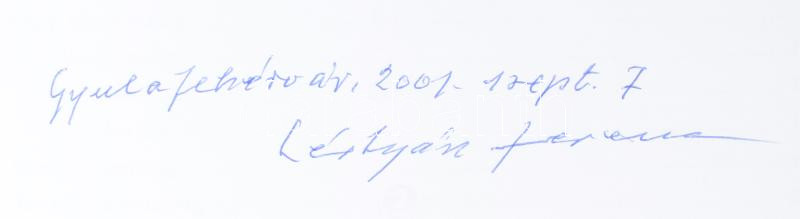 Gyulafehérvár, 2001. szept. 7
Léstyán Ferenc